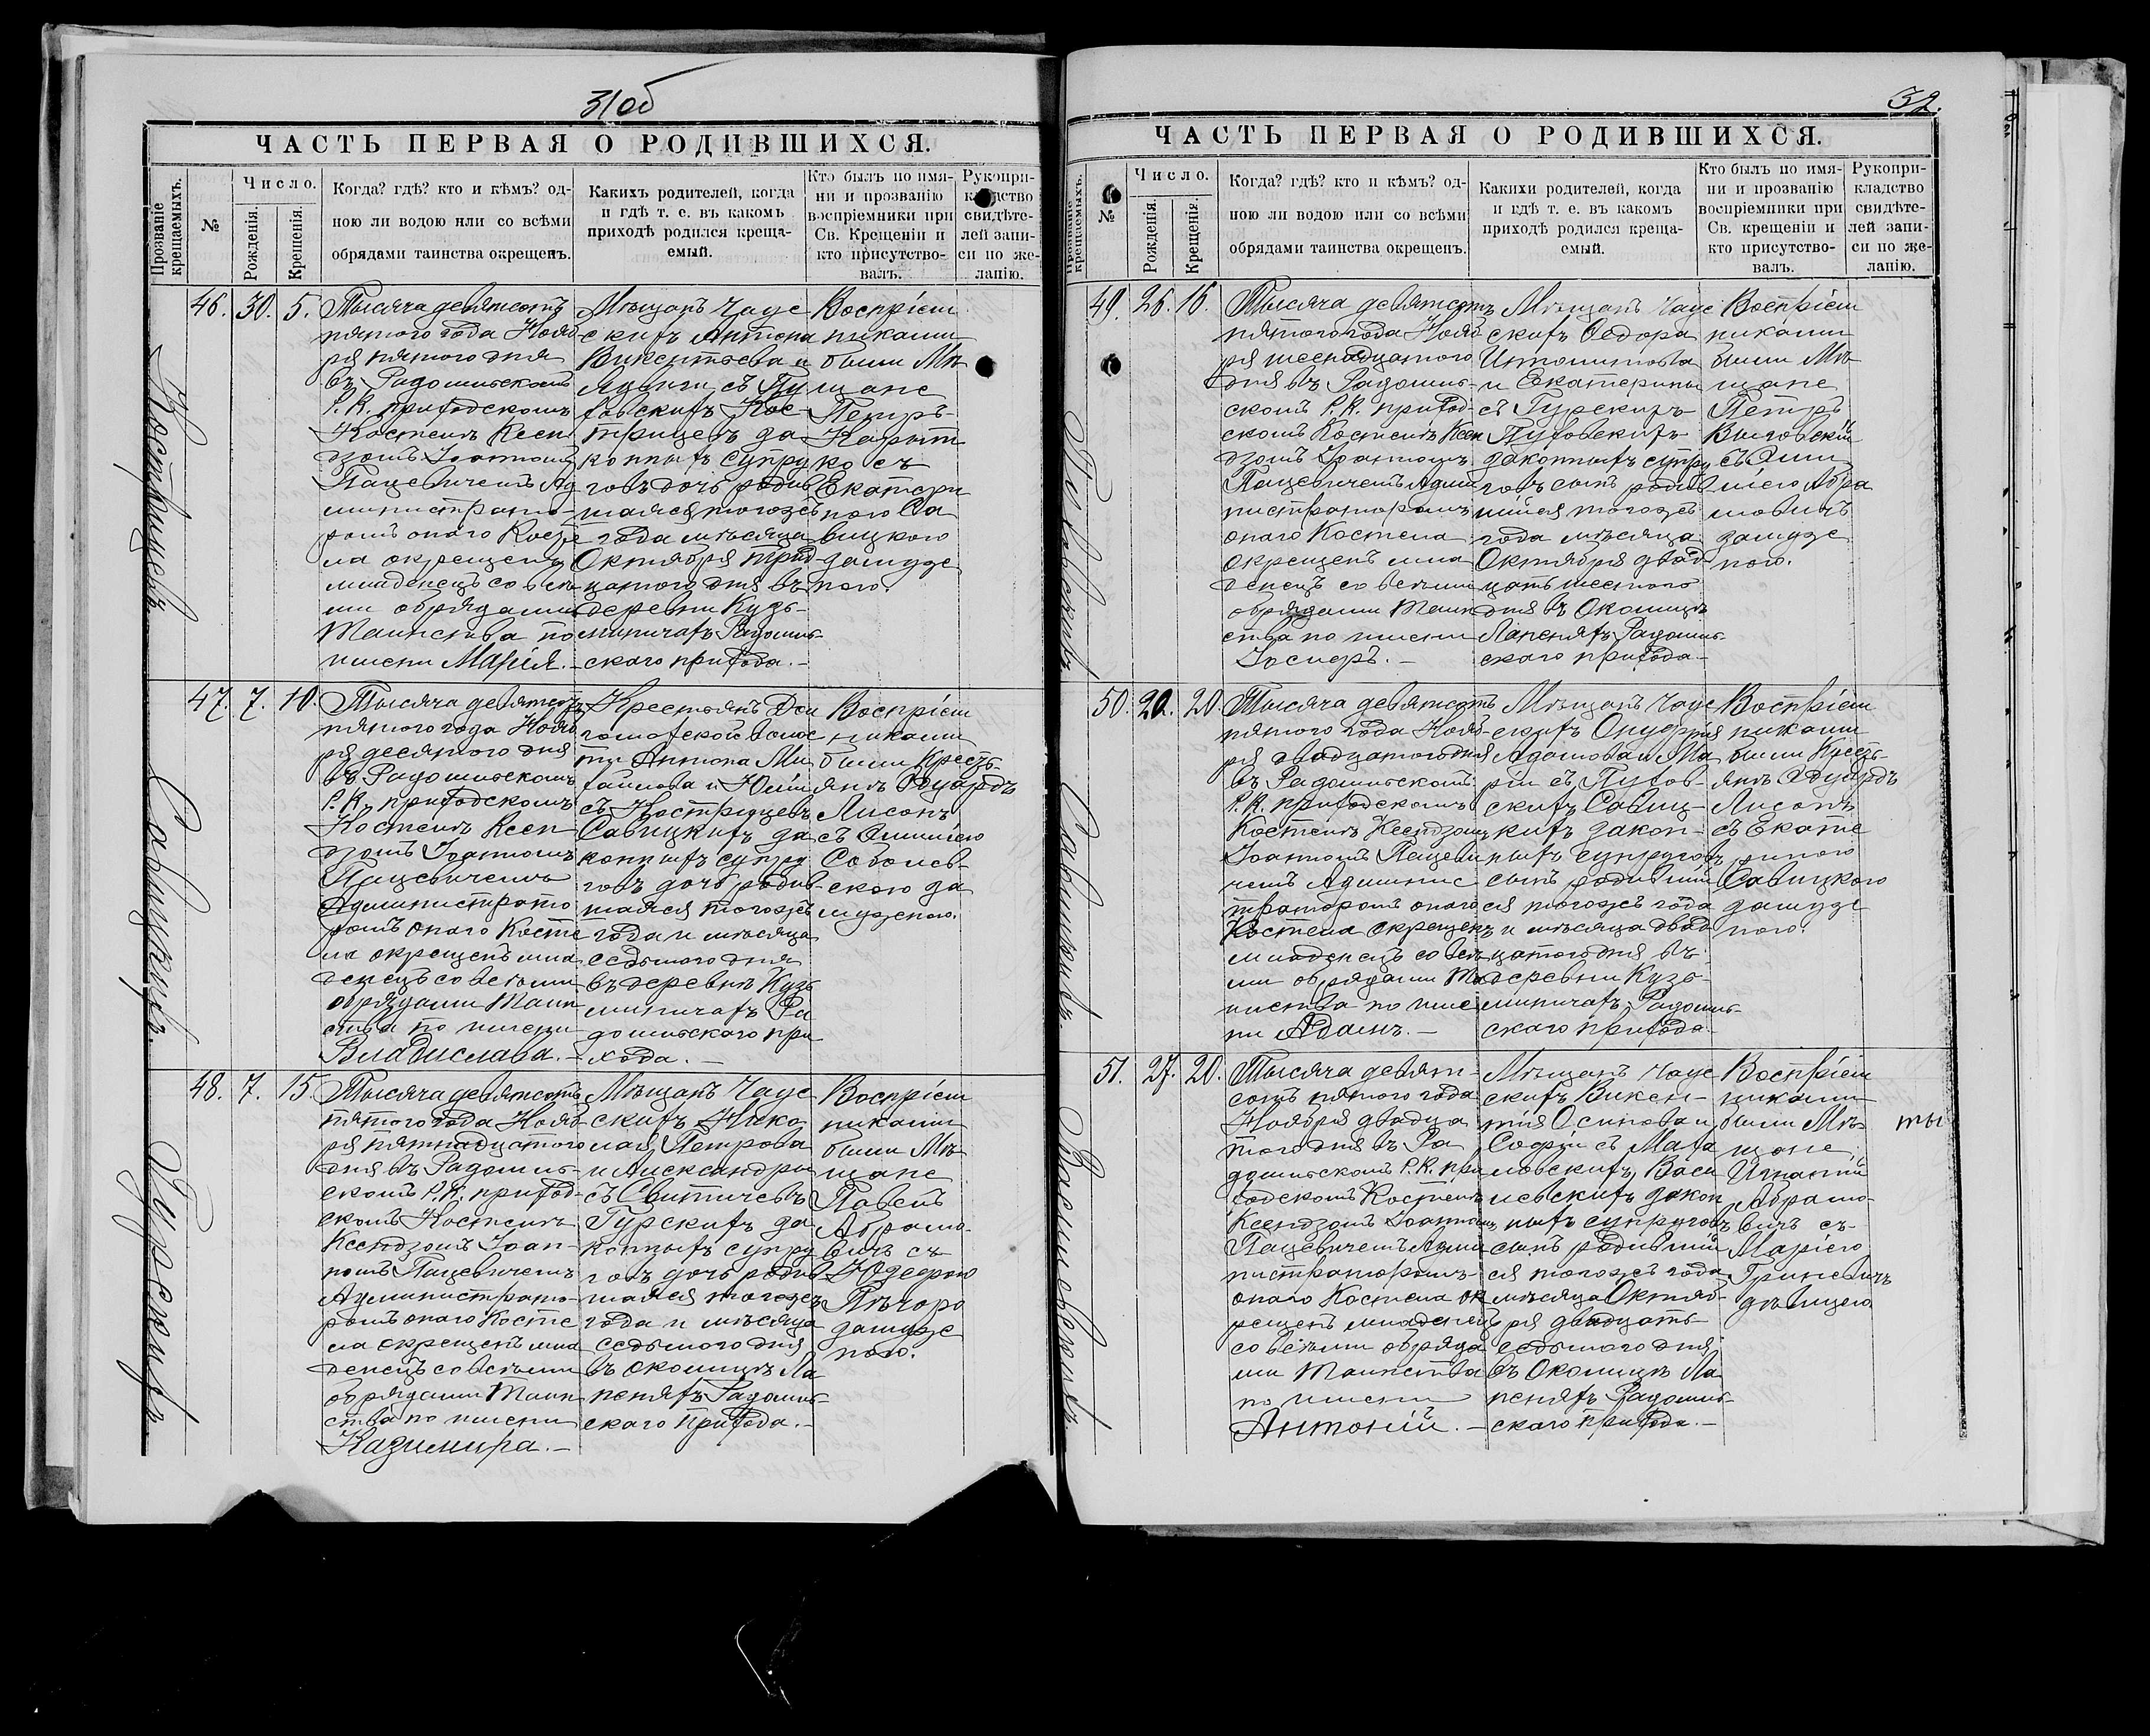 31об
ЧАСТЬ ПЕРВАЯ О РОДИВШИХСЯ.
Прозваніе крещаемыхъ.
№
Число.
Рожденія.
Крещенія.
Когда? гдѣ? кто и кѣмъ? од-
ною ли водою или со всѣми
обрядами таинства окрещенъ.
Какихъ родителей, когда
и гдѣ т. е. въ какомъ
приходѣ родился креща-
емый.
Кто былъ по имя-
ни и прозванію
воспріемники при
Св. Крещеніи и
кто присутство-
валъ.
Рукопри-
кладство
свидѣте-
лей запи-
си по же-
ланію.
46. 30. 5.
Тысяча девятсотъ
пятого года Нояб
ря пятого дня
въ Радомльскомъ
Р. К. приходскомъ
Костелѣ Ксен
дзомъ Іоанномъ
Пацевичемъ Ад
министрато-
ромъ онаго Косте
ла окрещенъ
младенецъ со всѣ
ми обрядами
Таинства по
имени Марія.-
Мѣщанъ Чаус
скихъ Антона
Викентьева и
Ядвиги съ Пу
ховскихъ Кос-
трицевъ за
конныхъ супру
говъ дочь родив
шаяся тогожъ
года мѣсяца
Октября трид
цатого дня въ
деревни Кузь-
миничахъ Радомль-
скаго прихода.-
Воспріем
никами
были Мѣ
щане
Петръ
съ
Екатери
ною Са
вицкою
замуж
ною.
47. 7. 10.
Савицкихъ.
Тысяча девятсотъ
пятого года Нояб
ря десятого дня
въ Радомльскомъ
Р. К. приходскомъ
Костелѣ Ксен-
дзомъ Іоанномъ
Пацевичемъ
Администрато
ромъ онаго Косте
ла окрещенъ мла
денецъ со всѣми
обрядами Таин
ства по имени
Владислава.-
Крестьянъ Дол
гомохской волос
ти Антона Ми
хайлова и Юліи
съ Кострицевъ
Савицкихъ за
конныхъ супру
говъ дочь родив-
шаяся тогожъ
года и мѣсяца
седьмого дня
въ деревнѣ Кузь
миничахъ Ра
домльского при
хода.-
Воспріем
никами
были Кресть-
янѣ Эдуардъ
Лисонъ
съ Эмиліею
Соболев-
скою за
мужною.
48. 7. 15.
Гурскихъ.
Тысяча девятсотъ
пятого года Нояб
ря пятнадцатого
дня въ Радомль-
скомъ Р. К. приход-
скомъ Костелѣ
Ксендзомъ Іоан-
номъ Пацевичемъ
Администрато-
ромъ онаго Косте
ла окрещенъ мла
денецъ со всѣми
обрядами Таин
ства по имени
Казимира.-
Мѣщанъ Чаус
скихъ Нико
лая Петрова
и Александры
съ Свитичевъ
Гурскихъ за
конныхъ супру
говъ дочь родив
шаяся тогожъ
года и мѣсяца
седьмого дня
въ околицѣ Ла
пеняхъ Радомль-
скаго прихода.-
Воспріем
никами
были Мѣ
щане
Павелъ
Абрамо-
вичъ съ
замуж
ною.
32.
ЧАСТЬ ПЕРВАЯ О РОДИВШИХСЯ.
Прозваніе крещаемыхъ.
№
Число.
Рожденія.
Крещенія.
Когда? гдѣ? кто и кѣмъ? од-
ною ли водою или со всѣми
обрядами таинства окрещенъ.
Какихи родителей, когда
и гдѣ т. е. въ какомъ
приходѣ родился креща-
емый.
Кто былъ по имя-
ни и прозванію
воспріемники при
Св. крещеніи и
кто присутство-
валъ.
Рукопри-
кладство
свидѣте-
лей запи-
си по же-
ланію.
49. 26. 16.
Пуховскихъ
Тысяча девятсотъ
пятого года Нояб
ря шеснадцатого
дня въ Радомль-
скомъ Р. К. приход-
скомъ Костелѣ Ксен
дзомъ Іоанномъ
Пацевичемъ Адми
нистраторомъ
онаго Костела
окрещенъ мла
денецъ со всѣми
обрядами Таин
ства по имени
Іосифъ.-
Мѣщанъ Чаус
скихъ Ѳедора
Иполитова
и Екатерины
съ Гурскихъ
Пуховскихъ
законныхъ супру
говъ сынъ родив-
шійся тогожъ
года мѣсяца
Октября двад
цать шестого
дня въ Околицѣ
Лапеняхъ Радомль-
скаго прихода-
Воспріем
никами
были Мѣ
щане
Петръ
съ Эми
ліею Абра
мовичъ
замуж
ною.
50. 20. 20.
Савицкихъ
Тысяча девятсотъ
пятого года Нояб-
ря двадцатого дня
въ Радомльскомъ
Р. К. приходскомъ
Костелѣ Ксендзомъ
Іоанномъ Пацеви
чемъ Админис
траторомъ онаго
Костела окрещенъ
младенецъ со всѣ
ми обрядами Та
инства по име
ни Адамъ.-
Мѣщанъ Чаус
скихъ Онуфрія
Адамова и Ма
ріи съ Пухов-
скихъ Савиц-
кихъ закон-
ныхъ супруговъ
сынъ родившій
ся тогожъ года
и мѣсяца двад
цатого дня въ
деревни Кузь-
миничахъ Радомль-
скаго прихода-
Воспріем
никами
были Кресть-
янѣ Эдуардъ
Лисонъ
съ Екате
риною
Савицкою
замуж
ною.
51. 27. 20.
Василевскихъ
Тысяча девят-
сотъ пятого года
Ноября двадца
того дня въ Ра
домльскомъ Р. К. при
ходскомъ Костелѣ
Ксендзомъ Іоанномъ
Пацевичемъ Адми
нистраторомъ
онаго Костела ок
рещенъ младенец
со всѣми обряда
ми Таинства
по имени
Антоній.-
Мѣщанъ Чаус
скихъ Викен-
тія Осипова и
Софіи съ Мала
ховскихъ Васи
левскихъ закон
ныхъ супруговъ
сынъ родившій
ся тогожъ года
мѣсяца Октяб-
ря двадцать
седьмого дня
въ Околицѣ Ла
пеняхъ Радомль-
скаго прихода.-
Воспріем
никами
были Мѣ-
щане
Игнатій
Абрамо-
вичъ съ
Маріею
Гриневичъ
дѣвицею
ты